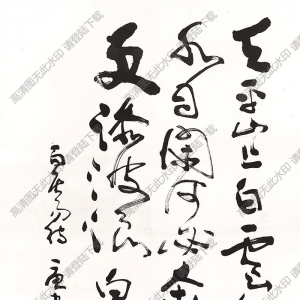 天平山上白雲
水自闲何必奔
更添波浪向
白居易诗
高清图无此水印 请登陆下载
高清图无此水印 请登陆下载
高清图无此水印 请登陆下载
高清图无此水印 请登陆下载